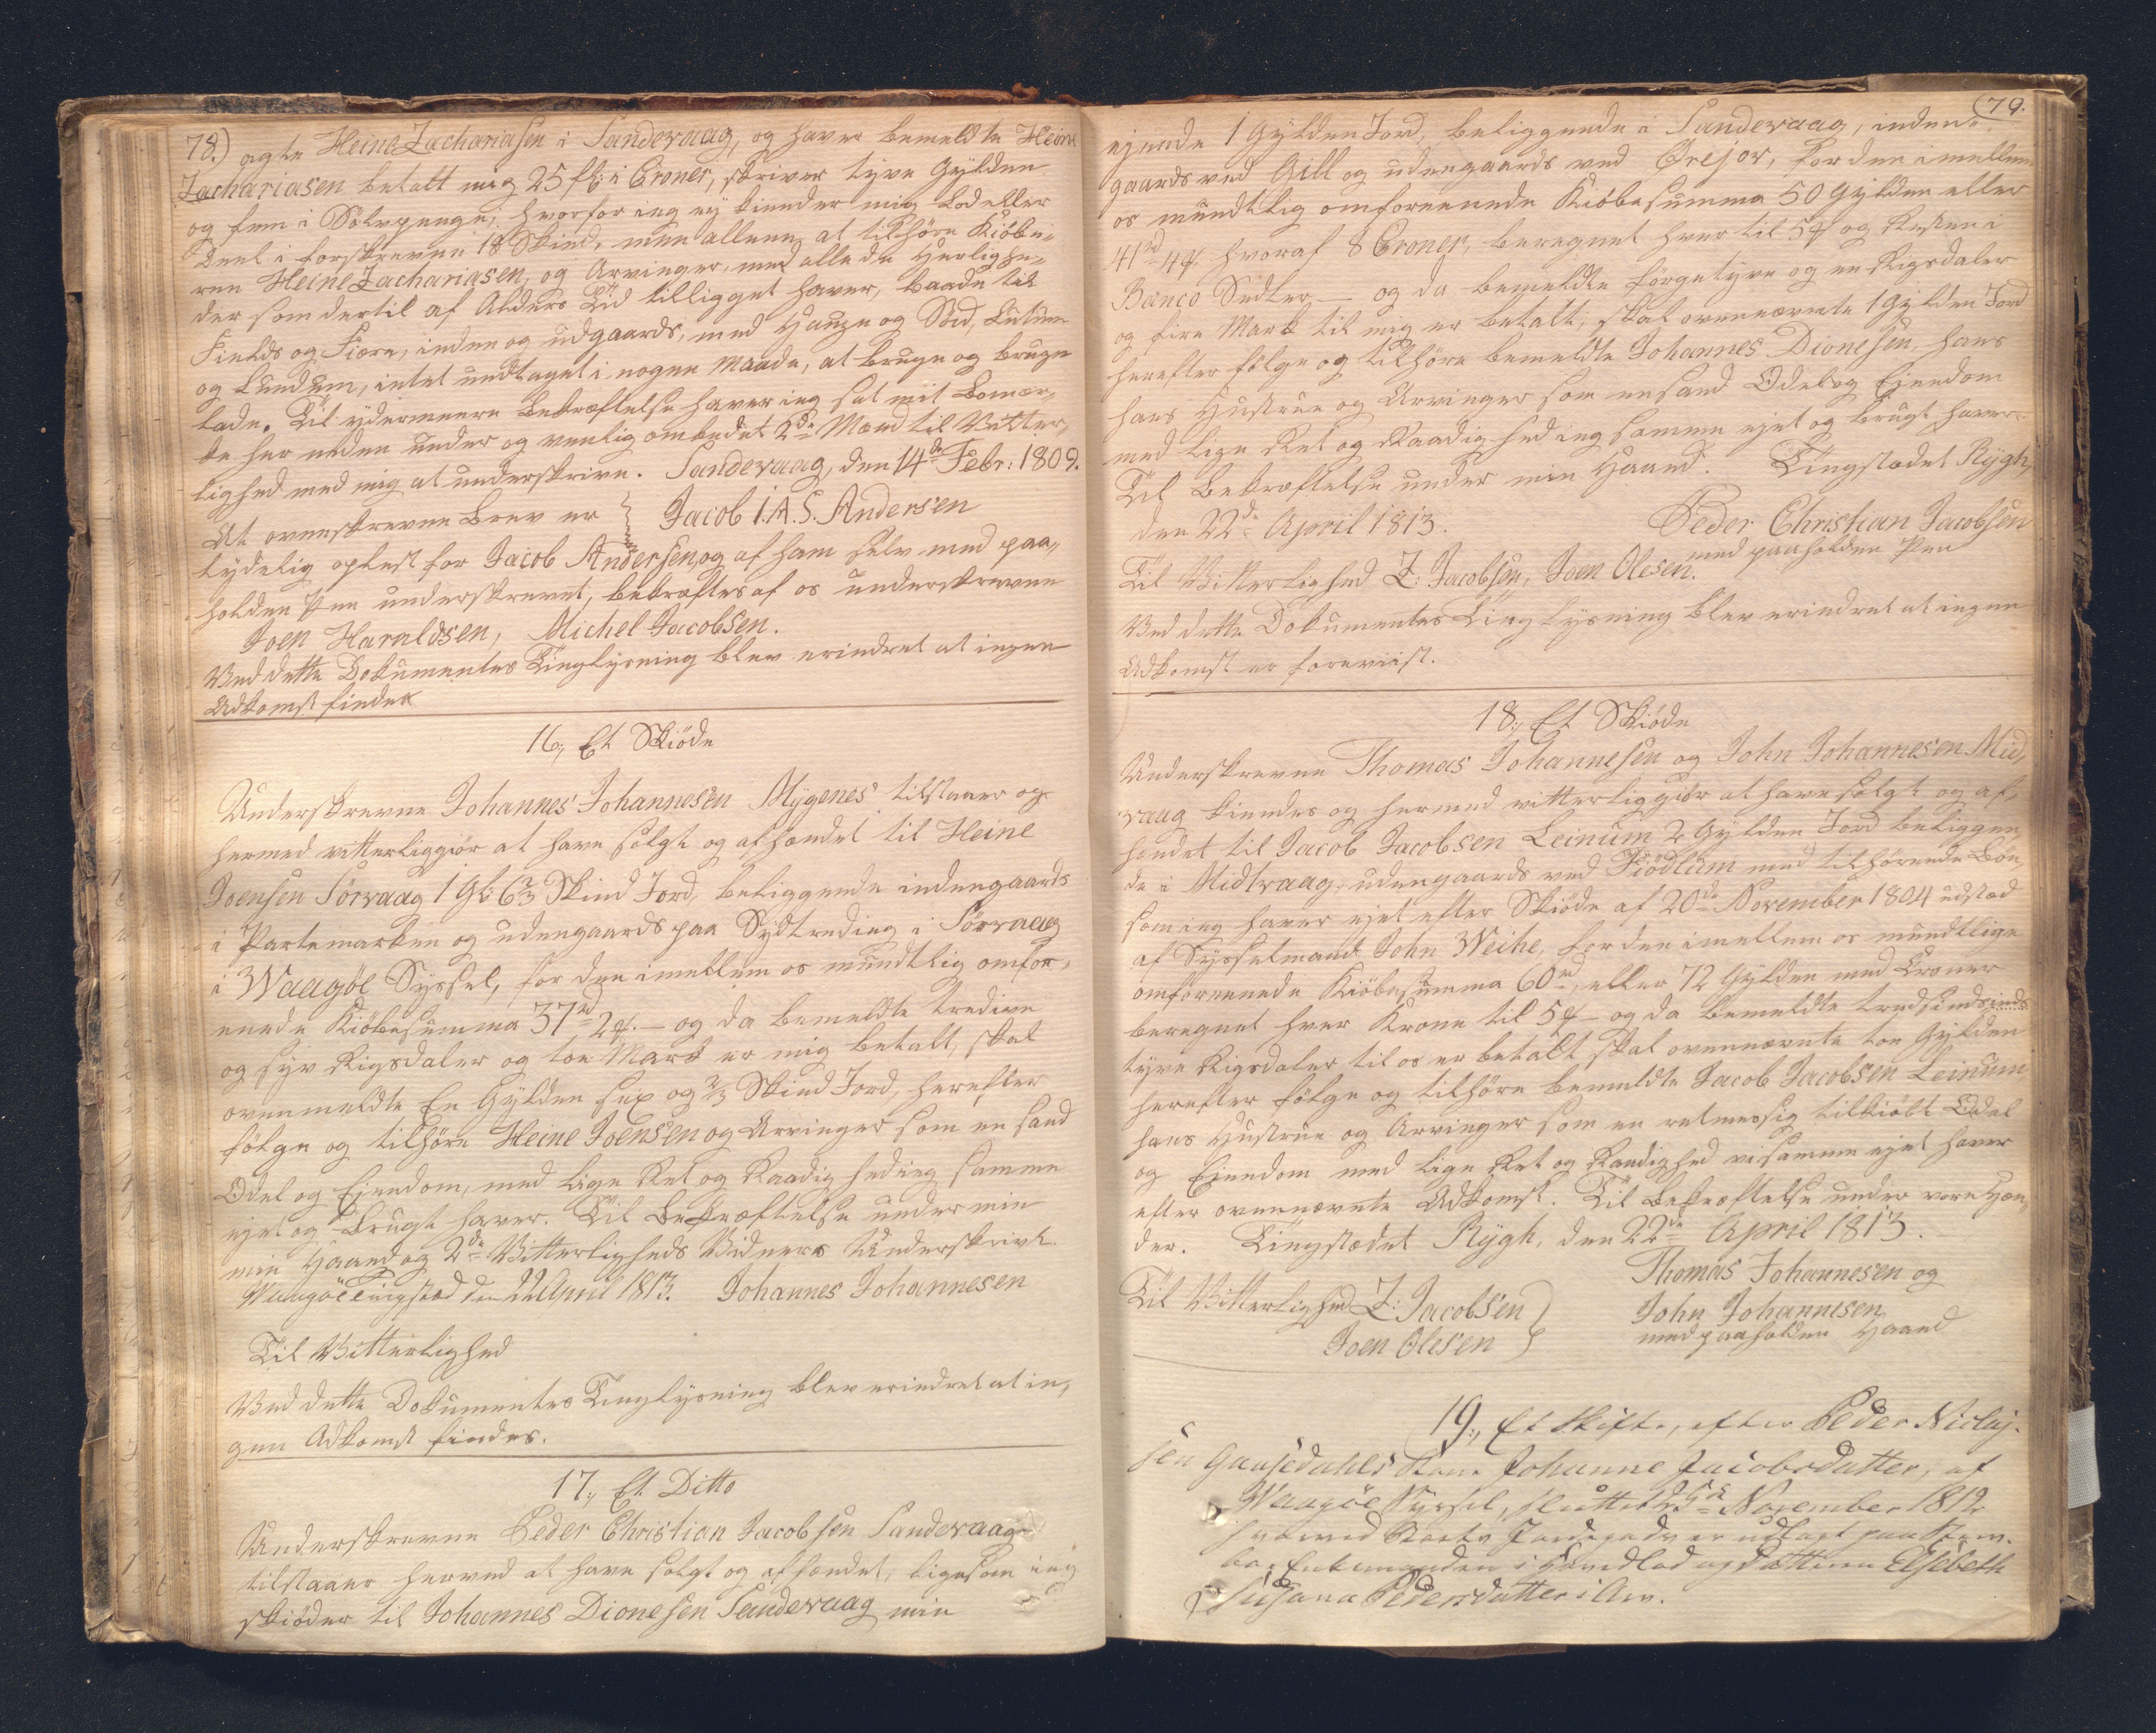 78.) agte Heine Zachariasen i Sandevaag, og haver bemeldte Heine
Zachariasen betalt mig 25 fl: i Croner, skriver tyve Gylden
og fem i Sølvpenge, hvorfor jeg ej kiender mig Lod eller
Deel i forskrevne 18 Skind, men allene at tilhöre Kiöbe-
ren Heine Zachariasen, og Arvinger, med alle de Herlighe-
der som dertil af Alders Tiid tilligget haver, baade til
Fields og Fiære, inden og udgaards, med Hauge og Sted, Lutum
og Lundum, intet undtaget i nogen Maade, at bruge og bruge
lade. Til ydermeere Bekræftelse haver jeg sat mit Bomær-
ke her neden under og venlig ombedet 2de Mænd til Vitter-
lighed med mig at underskrive. Sandevaag, den 14de Febr: 1809.
At ovenskrevne Brev er } Jacob I.A.S. Andersen
tydelig oplæst for Jacob Andersen, og af ham selv med paa-
holden Pen underskrevet, bekræftes af os underskrevne
Joen Haraldsen, Michel Jacobsen.
Ved dette Dokumentes Tinglysning blev erindret at ingen
Adkomst findes
16., Et Skiöde
Underskrevne Johannes Johannesen Mygenes tilstaaer og
hermed vitterliggiör at have solgt og afhændet til Heine
Joensen Sörvaag 1 Gl: 6 2/3 Skind Jord, beliggende indengaards
i Partemarken og udengaards paa Sydtreding i Sörvaag
i Waagöe Syssel, for den imellem os mundtlig omfor-
enede Kiöbesumma 37rd 2 Mk. — og da bemeldte tredive
og syv Rigsdaler og toe Mark er mig betalt, skal
ovenmeldte En Gylden sex og 2/3 Skind Jord, herefter
fölge og tilhöre Heine Joensen og Arvinger som en sand
Odel og Eiendom, med lige Ret og Raadighed jeg samme
ejet og brugt haver. Til Bekræftelse under min
min Haand og 2de Vitterligheds Vidners Underskrivt.
Waagöe Tingsted den 22 April 1813. Johannes Johannesen
Til Vitterlighed
Ved dette Dokumentes Tinglysning blev erindret at in-
gen Adkomst findes.
17., Et Ditto
Underskrevne Peder Christian Jacobsen Sandevaag
tilstaaer herved at have solgt og afhændet, ligesom jeg
skiöder til Johannes Dionesen Sandevaag min
79.
ejende 1 Gylden Jord, beliggende i Sandevaag, inden-
gaards ved Gill og udengaards ved Örejor, for den imellem
os mundtlig omforenende Kiöbesumma 50 Gylden eller
41rd 4 Mk hvoraf 8 Croner, beregnet hver til 5 Mk og Resten i
Banco Sedler — og da bemeldte förgetyve og en Rigsdaler
og fire Mark til mig er betalt, skal ovennævnte 1 Gylden Jord
herefter fölge og tilhöre bemeldte Johannes Dionesen, hans
hans Hustrue og Arvinger som en sand Odel og Eiendom
med lige Ret og Raadighed jeg samme ejet og brugt haver.
Til Bekræftelse under min Haand. Tingstedet Rygh,
den 22de April 1813. Peder Christian Jacobsen
Til Vitterlighed Z: Jacobsen, Joen Olesen. med paaholden Pen
Ved dette Dokumentes Tinglysning blev erindret at ingen
Adkomst er foreviist.
18., Et Skiöde
Underskrevne Thomas Johannesen og John Johannesen Mid-
vaag kiendes og hermed vitterliggiör at have solgt og af-
hændet til Jacob Jacobsen Leinum 2 Gylden Jord beliggen-
de i Midtvaag, udengaards ved Fiödlum med tilhörende Böe
som jeg haver ejet efter Skiöde af 20de November 1804 udsted
af Sysselmand John Weihe, for den imellem os mundtlige
omforenende Kiöbesumma 60rd, eller 72 Gylden med Croner
beregnet hver Krone til 5 Mk — og da bemeldte tredsindsinds
tyve Rigsdaler til os er betalt skal ovennævnte toe Gylden
herefter fölge og tilhöre bemeldte Jacob Jacobsen Leinum
hans Hustrue og Arvinger som en retmessig tilkiöbt Odel
og Eiendom med lige Ret og Raadighed vi samme ejet haver
efter ovennævnte Adkomst. Til Bekræftelse under vore Hæn-
der. Tingstedet Rygh, den 22de April 1813.
Thomas Johannesen og
Til Vitterlighed Z: Jacobsen } John Johannesen
Joen Olesen med paaholden Haand
19., Et Skifte, efter Peder Niclaj-
sen Gaasedahls Kone Johanne Jacobsdatter, af
Waagöe Syssel, sluttet d. 5te November 1812
hvorved Boets Jordegods er udlagt paa
Enkemanden i Hovedlod og Datteren Elsebeth
Susanna Pedersdatter i Arv.